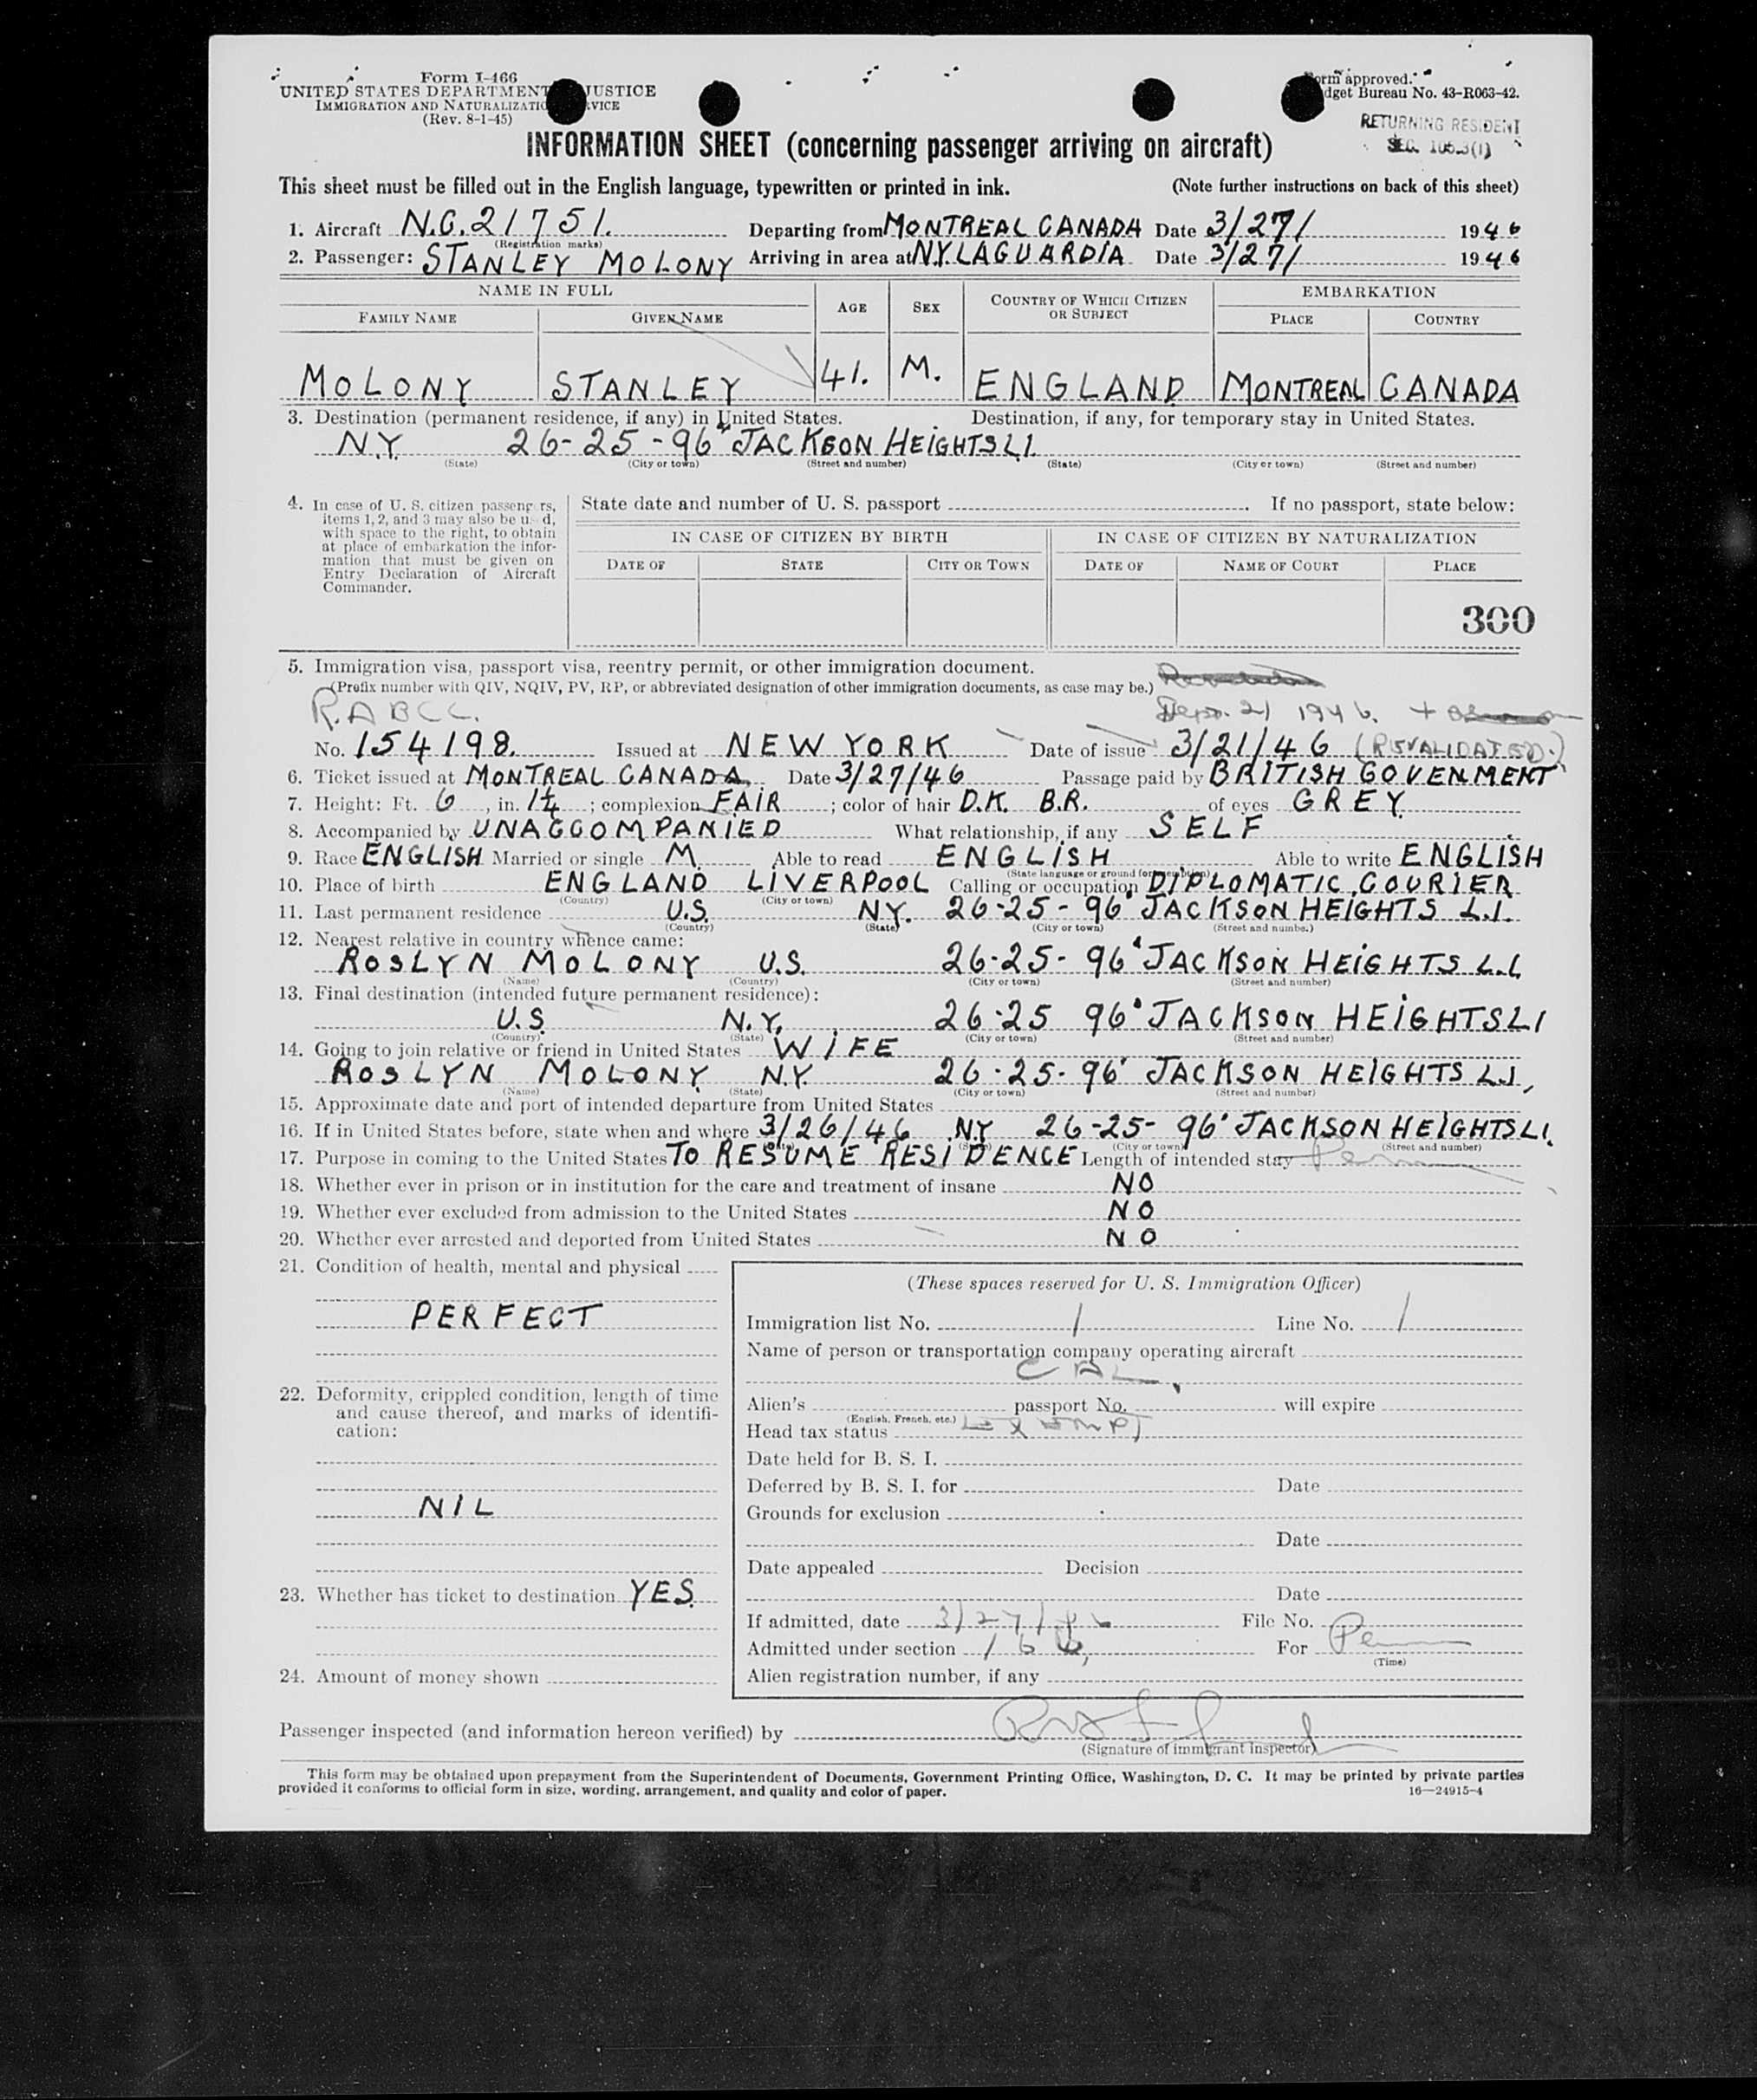 Form I-466
UNITED STATES DEPARTMENT JUSTICE
IMMIGRATION AND NATURALIZATIO RVICE
(Rev. 8-1-45)
orm approved.
dget Bureau No. 43-R063-42.
RETURNING RESIDENT
SEC.
INFORMATION SHEET (concerning passenger arriving on aircraft)
This sheet must be filled out in the English language, typewritten or printed in ink. (Note further instructions on back of this sheet)
1. Aircraft N.C.21751. Departing from MONTREAL CANADA Date 3/27/ 1946
(Registration marks)
2. Passenger: STANLEY MOLONY Arriving in area at N.Y. LAGUARDIA Date 3/27/ 1946
NAME IN FULL AGE SEX COUNTRY OF WHICH CITIZEN OR SUBJECT EMBARKATION
FAMILY NAME GIVEN NAME PLACE COUNTRY
MOLONY STANLEY 41. M. ENGLAND MONTREAL CANADA
3. Destination (permanent residence, if any) in United States. Destination, if any, for temporary stay in United States.
N.Y. 26-25-96' JACKSON HEIGHTS L.I.
(State) (City or town) (Street and number) (State) (City or town) (Street and number)
4. In case of U. S. citizen passengers, State date and number of U. S. passport . If no passport, state below:
items 1, 2, and 3 may also be u d,
with space to the right, to obtain
at place of embarkation the infor-
mation that must be given on
Entry Declaration of Aircraft
Commander.
IN CASE OF CITIZEN BY BIRTH IN CASE OF CITIZEN BY NATURALIZATION
DATE OF STATE CITY OR TOWN DATE OF NAME OF COURT PLACE
300
5. Immigration visa, passport visa, reentry permit, or other immigration document.
(Prefix number with QIV, NQIV, PV, RP, or abbreviated designation of other immigration documents, as case may be.)
R.A.B.C.C. 21 1946.
No. 154198. Issued at NEW YORK Date of issue 3/21/46 (REVALIDATED.)
6. Ticket issued at MONTREAL CANADA. Date 3/27/46 Passage paid by BRITISH GOVENMENT
7. Height: Ft. 6, in. 1¼; complexion FAIR; color of hair D.K. B.R. of eyes GREY
8. Accompanied by UNACCOMPANIED What relationship, if any SELF
9. Race ENGLISH Married or single M. Able to read ENGLISH Able to write ENGLISH
(State language or ground for exemption)
10. Place of birth ENGLAND LIVERPOOL Calling or occupation DIPLOMATIC COURIER
(Country) (City or town)
11. Last permanent residence U.S. N.Y. 26-25-96' JACKSON HEIGHTS L.I.
(Country) (State) (City or town) (Street and number)
12. Nearest relative in country whence came:
ROSLYN MOLONY U.S. 26-25-96' JACKSON HEIGHTS L.I.
(Name) (Country) (City or town) (Street and number)
13. Final destination (intended future permanent residence):
U.S. N.Y. 26-25 96' JACKSON HEIGHTS L I
(Country) (State) (City or town) (Street and number)
14. Going to join relative or friend in United States WIFE
ROSLYN MOLONY N.Y. 26-25-96' JACKSON HEIGHTS L.I.
(Name) (State) (City or town) (Street and number)
15. Approximate date and port of intended departure from United States
16. If in United States before, state when and where 3/26/46 N.Y 26-25-96' JACKSON HEIGHTS L I.
(State) (City or town) (Street and number)
17. Purpose in coming to the United States TO RESUME RESIDENCE Length of intended stay Perm
18. Whether ever in prison or in institution for the care and treatment of insane NO
19. Whether ever excluded from admission to the United States NO
20. Whether ever arrested and deported from United States NO
21. Condition of health, mental and physical
PERFECT
22. Deformity, crippled condition, length of time
and cause thereof, and marks of identifi-
cation:
NIL
23. Whether has ticket to destination YES
24. Amount of money shown
(These spaces reserved for U. S. Immigration Officer)
Immigration list No. 1 Line No. 1
Name of person or transportation company operating aircraft
CAL
Alien's passport No. will expire
(English, French, etc.)
Head tax status EXEMPT
Date held for B. S. I.
Deferred by B. S. I. for Date
Grounds for exclusion
Date
Date appealed Decision
Date
If admitted, date 3/27/46 File No.
Admitted under section For Perm
(Time)
Alien registration number, if any
Passenger inspected (and information hereon verified) by
(Signature of immigrant inspector)
This form may be obtained upon prepayment from the Superintendent of Documents, Government Printing Office, Washington, D. C. It may be printed by private parties
provided it conforms to official form in size, wording, arrangement, and quality and color of paper. 16—24915-4